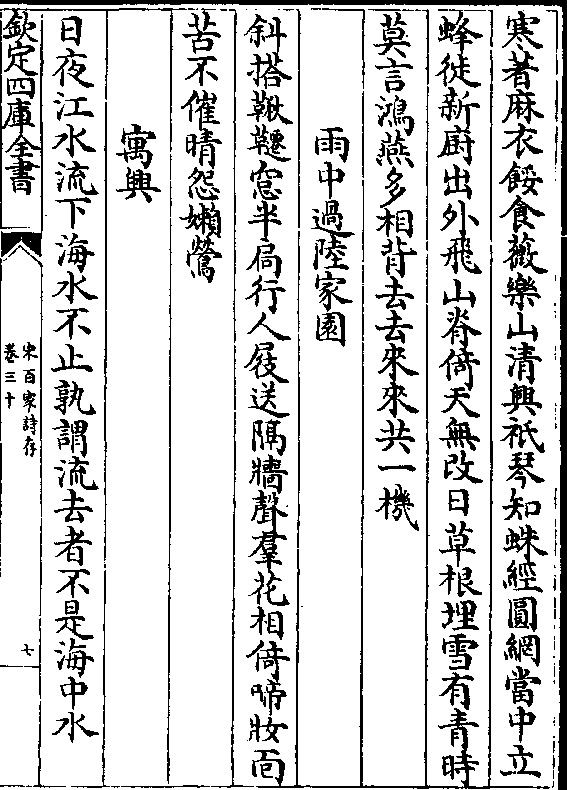 寒著麻衣餒食薇樂山清興祇琴知蛛經圓網當中立
蜂徙新廚出外飛山脊倚天無改日草根埋雪有青時
莫言鴻燕多相背去去來來共一機
雨中過陸家園
斜搭鞦韆窓半扄行人屐送隔牆聲羣花相倚啼妝面
苦不催晴怨嬾鶯
寓興
日夜江水流下海水不止孰謂流去者不是海中水
欽定四庫全書
宋百家詩存
卷三十
七